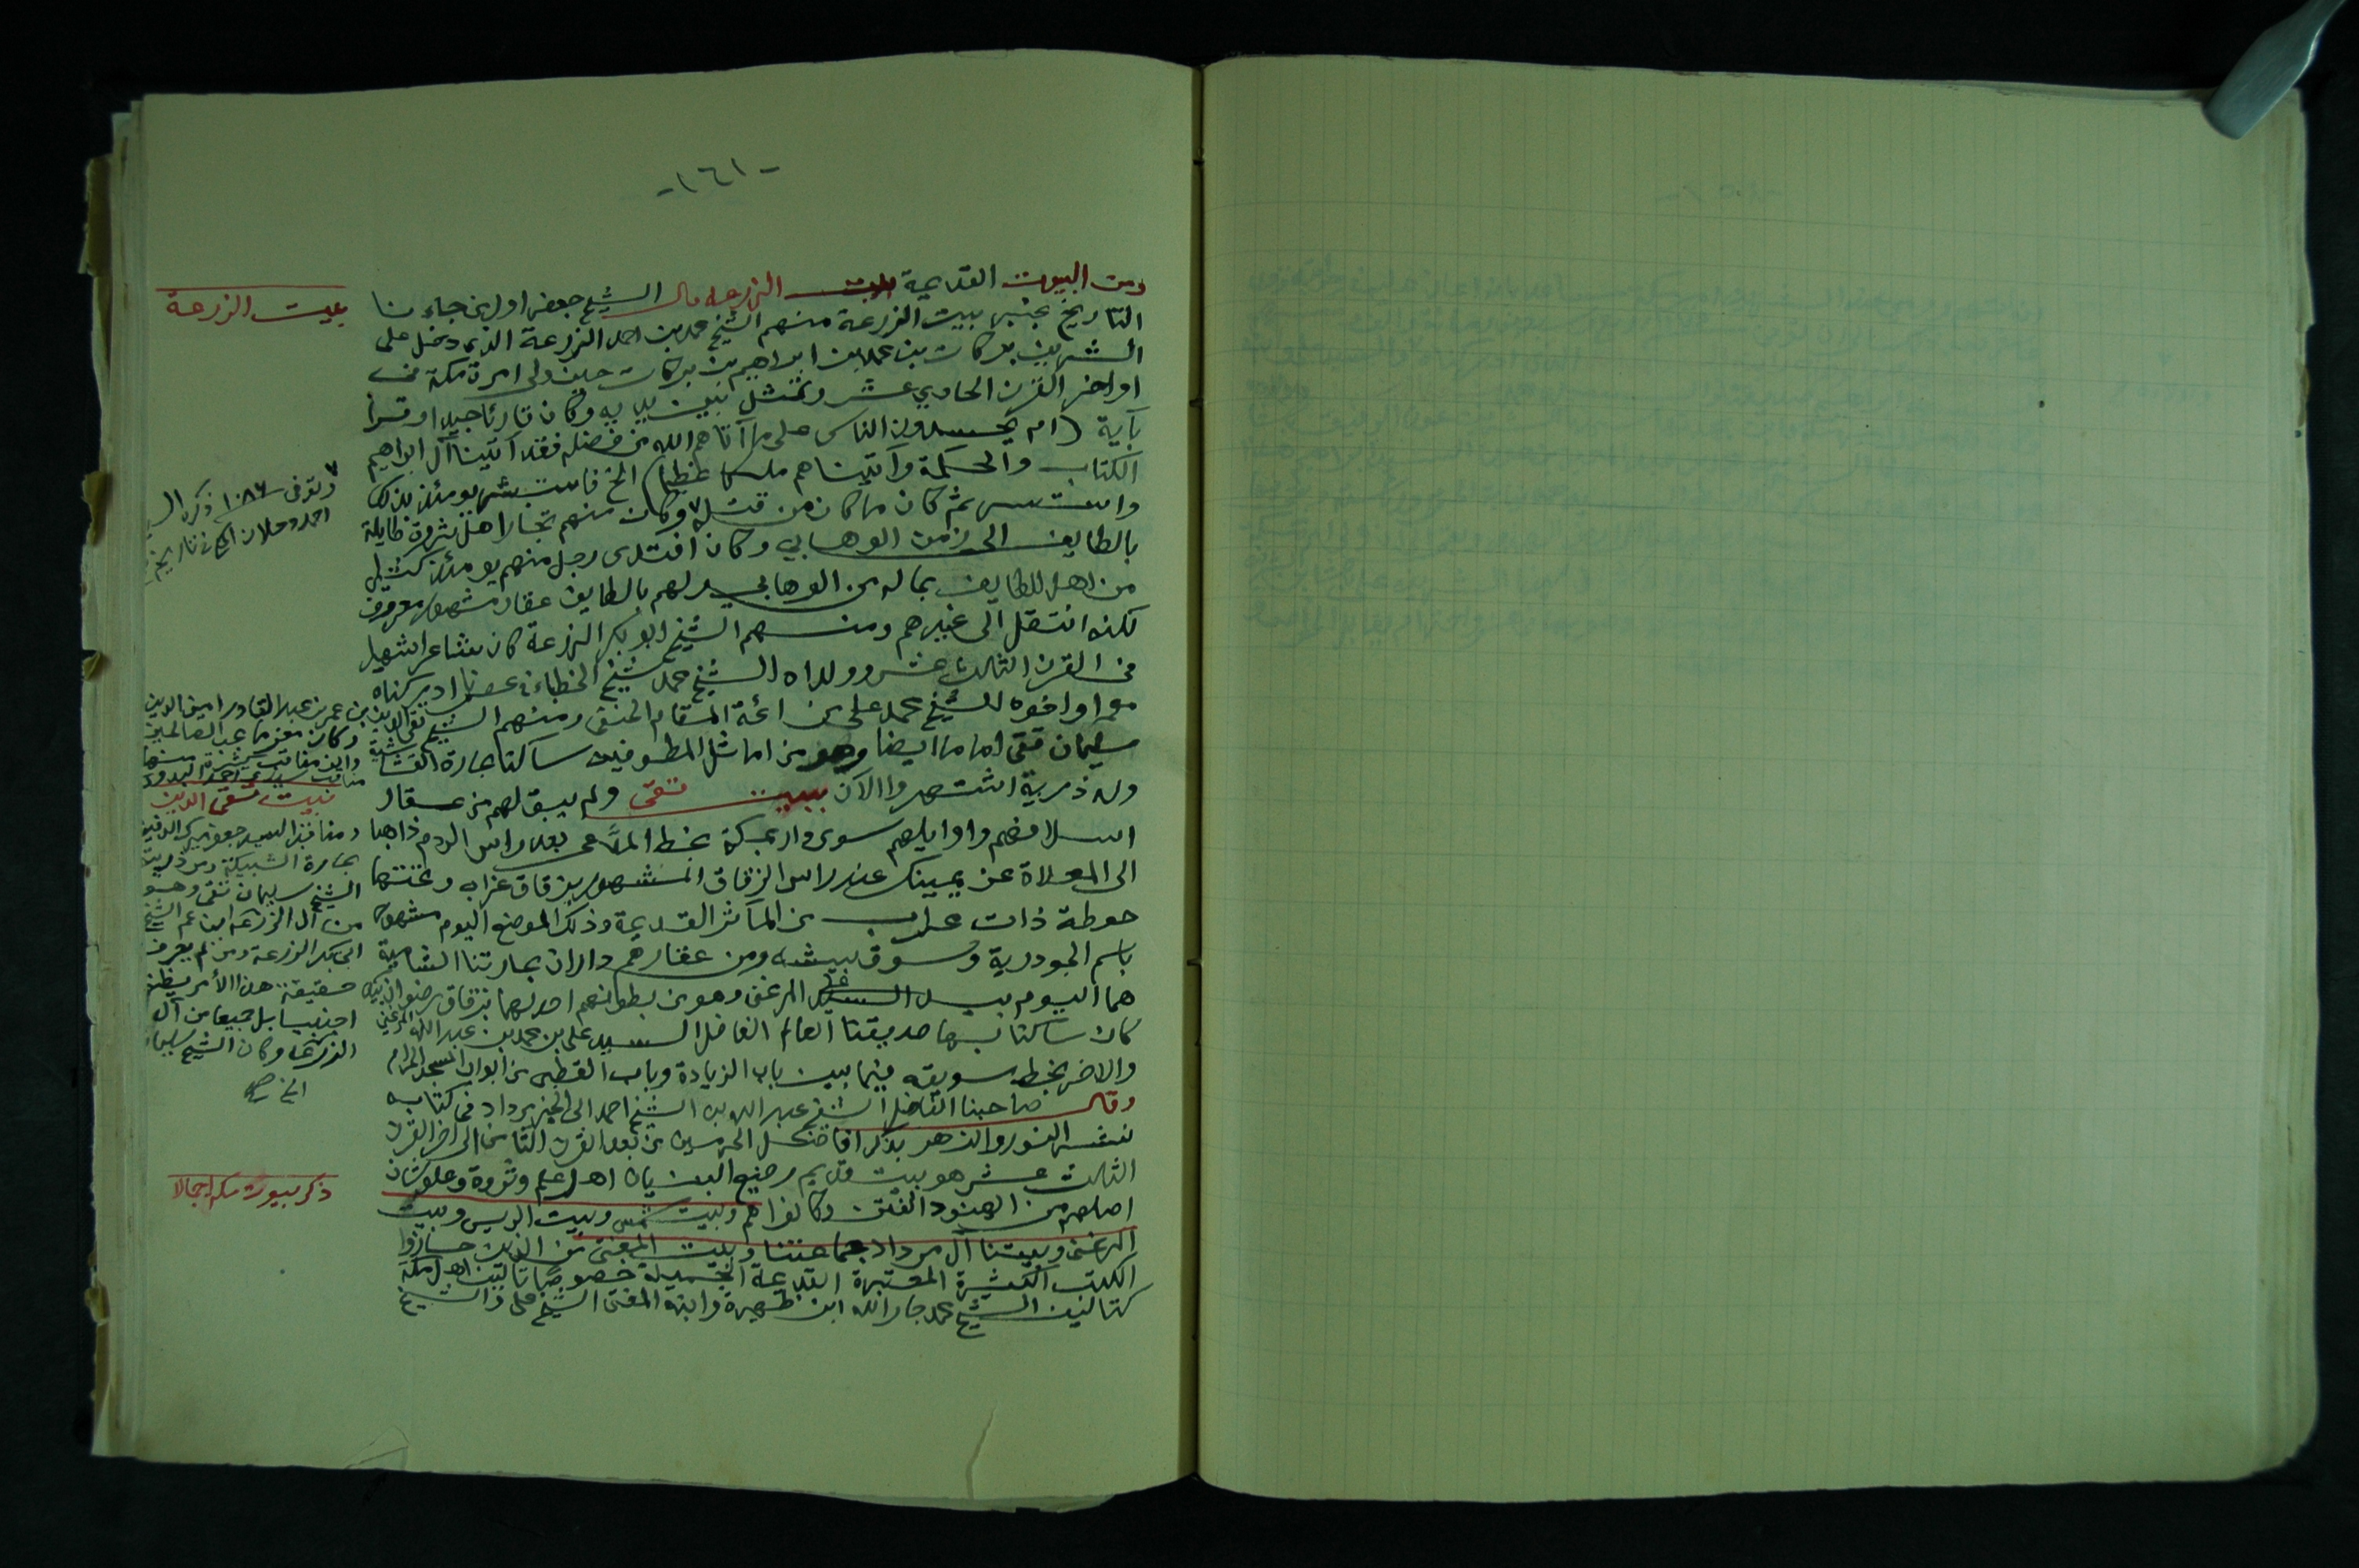 -١٦١-
ومن البيوت القديمة بيت الزرعه قال الشيخ جعفر اولبني جاءنا
التاريخ بخبر بيت الزرعة منهم الشيخ محمد بن احمد الزرعة الذي دخل على
الشريف بركات بن محمد بن ابراهيم بن بركات حين ولي امرة مكة في
اواخر القرن الحادي عشر وتمثل بين يديه وكان قارئا جيدا وقرا
بآية (ام يحسدون الناس على ما آتاهم الله من فضله فقد آتينا آل ابراهيم
الكتاب والحكمة وآتيناهم ملكا عظيما) الخ فاستبشر يومئذ بذلك
ثم كان ما كان من قتله ٧ وكان منهم تجارا اهل ثروة طايلة
بالطايف الى زمن الوهابي وكان افتدى رجل منهم يومئذ كثير
من اهل الطايف بماله من الوهابي ولهم بالطايف عقار مشهور معروف
لكنه انتقل الى غيرهم ومنهم الشيخ ابو بكر الزرعة كان شاعرا شهيرا
في القرن الثالث عشر وولداه الشيخ محمد شيخ الخطباء في عصرنا ادركناه
معمرا واخوه الشيخ محمد علي من ائمة المقام الحنفي ومنهم الشيخ
سليمان تقي اماما ايضا وهو من اماثل المطوفين ساكنا بحارة القشاشية
وله ذرية اشتهروا الآن ببيت تقي ولم يبق لهم من عقار
اسلافهم واوايلهم سوى دار بمكة بخط المدعى بعد راس الردم ذاهبا
الى المعلاة عن يمينك عند راس الزقاق المشهور بزقاق عرابه وتحتها
حوطة ذات من المآثر القديمة وذلك الموضع اليوم مشهور
باسم الجودرية وسوق بيشه ومن عقارهم داران بحارتنا الشامية
هما اليوم بيد السيد علي المرغني وهو من بطونهم احدهما بزقاق
كان ساكنا بها صديقنا العالم الفاضل السيد علي بن محمد بن عبد الله المرغني
والاخر بخط سويقه فيما بين باب الزيادة وباب القطبي من ابواب المسجد الحرام
وقال صاحبنا الفاضل الشيخ عبد الله بن الشيخ احمد ابي الخير مرداد في كتابه
نشر النور والزهر بذكر افاضل الحرمين من بعد القرن الثامن الى اخر القرن
الثالث عشر هو بيت قديم رفيع البنيان اهل علم وثروة وعلو شان
اصلهم من الهنود الفتن وكانوا هم وبيت شمس وبيت الريس وبيت
المرغني وبيتنا آل مرداد جماعتنا وبيت المفتي من الذين حازوا
الكتب الكثيرة المعتبرة القديمة خصوصا تآليف اهل مكة
كتآليف الشيخ محمد جار الله ابن ظهيرة وابنه المفتي الشيخ علي والشيخ
بيت الزرعة
٧ وتوفى ١٠٨٦ ذكره
احمد دحلان في تاريخه
تقي الدين بن عمر بن عبد القادر امين الدين
وكان مغرما بحب الصالحين
منها
مناقب سيدي احمد البدوي
بيت تقي الدين
ومناقب السيد جعفر
بحارة الشبيكة ومن ذريته
الشيخ سليمان تقي وهو
من آل الزرعة ابن عم الشيخ
ابي بكر الزرعة ومن لم يعرف
حقيقة هذا الأمر يظنه
اجنبيا بل جميعا من آل
الزرعة وكان الشيخ سليمان
الخ صح
ذكر بيوت مكة اجمالا